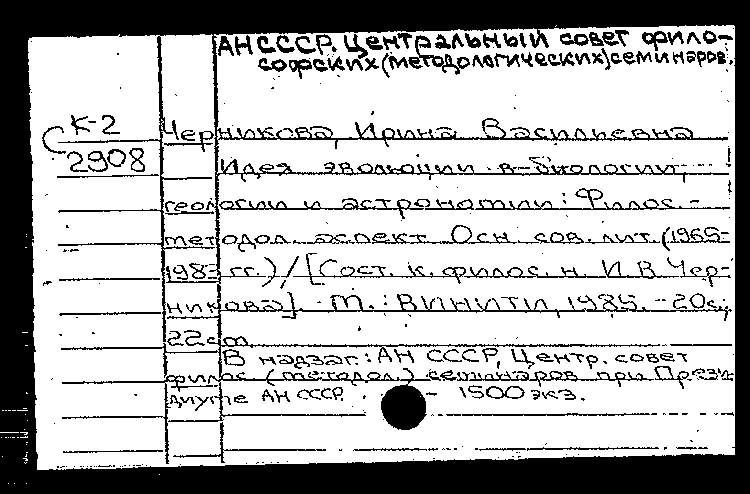 АН СССР. Центральный совет фило-
софских (методологических) семинаров.
К-2
Черникова, Ирина Васильевна
С 2908
Идея эволюции в биологии,
геологии и астрономии: Филос.-
методол. аспект Осн. сов. лит. (1965-
1983 гг.) / [Сост. к. филос. н. И.В. Чер-
никова]. - М.: ВИНИТИ, 1985. - 20 с.;
22 см.
В надзаг.: АН СССР, Центр. совет
филос (методол.) семинаров при Прези
диуме АН СССР. - 1500 экз.